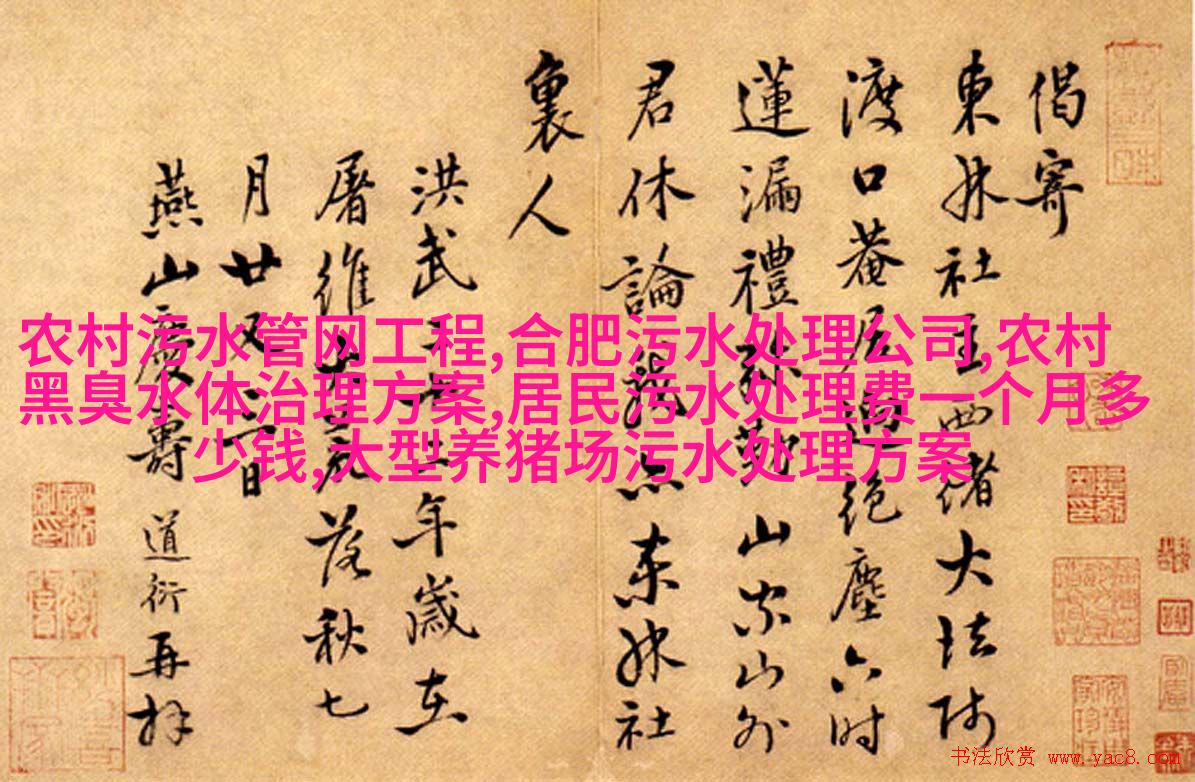 农村污水管网工程,合肥污水处理公司,农村
黑臭水体治理方案,居民污水处理费一个月多
少钱,大型养猪场污水处理方案
偈寄
東林社主西緒大法師
渡口菴居絶塵六时
蓮漏禮山家山外
君休論東林社
裏人
洪武二年歲在
屠維大荒落秋七
月廿又日
燕山慶壽 道衍再拜
书法欣赏 www.yac8.com